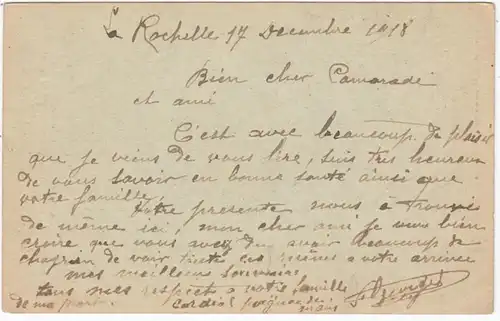 La Rochelle 17 Decembre 1918
Bien cher Camarade
et ami
C'est avec beaucoup de plaisir
que je viens de vous lire, suis tres heureux
de vous savoir en bonne santé ainsi que
votre famille
Votre presente nous a trouvé
de même ici, mon cher ami je veux bien
croire que vous avez du avoir beaucoup de
chagrin de voir toutes ces à votre arrivée
mes meilleurs souvenirs
tous mes respects a votre famille
de ma part. Cordial poignée de
main